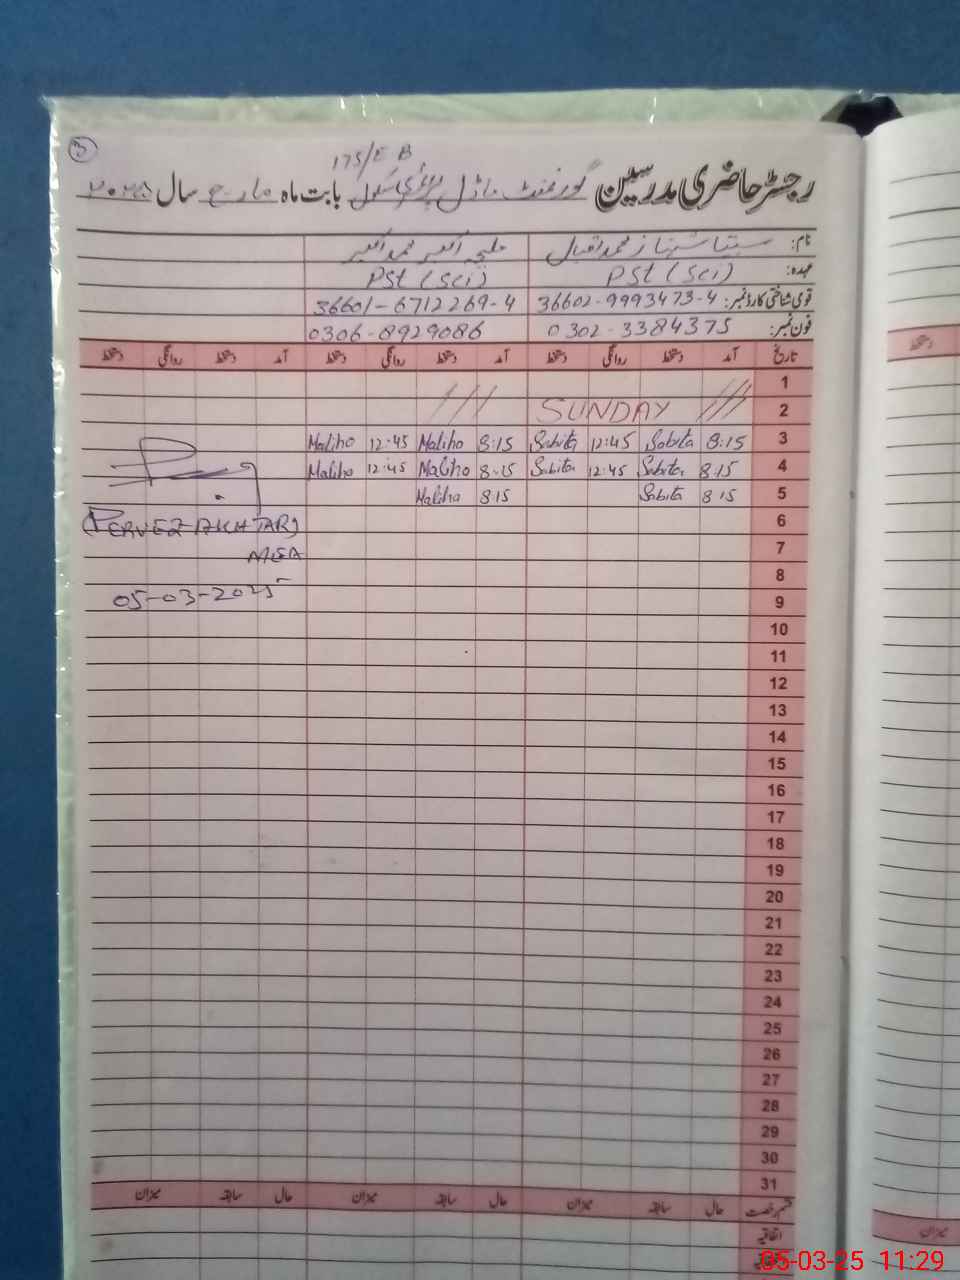 3
175/E B
رجسٹر حاضری مدرسین گورنمنٹ ماڈل پرائمری سکول بابت ماہ مارچ سال ۲۰۲۵
نام: سبیتا شہناز محمد اقبال ملیحہ اکبر محمد اکبر
عہدہ: PST (Sci) PST (Sci)
قومی شناختی کارڈ نمبر: 36602-9993473-4 36601-6712269-4
فون نمبر: 0302-3384375 0306-8929086
تاریخ آمد دستخط روانگی دستخط آمد دستخط روانگی دستخط آمد دستخط روانگی دستخط
1
2 /// SUNDAY ///
3 8:15 Sabita 12:45 Sabita 8:15 Maliha 12:45 Maliha
4 8:15 Sabita 12:45 Sabita 8:15 Maliha 12:45 Maliha
5 8:15 Sabita 8:15 Maliha
6
(PERVEZ AKHTAR)
7
MEA
8
9
05-03-2025
10
11
12
13
14
15
16
17
18
19
20
21
22
23
24
25
26
27
28
29
30
31
قسم رخصت حال سابقہ میزان حال سابقہ میزان حال سابقہ میزان
اتفاقیہ
دستخط
میزان
05-03-25 11:29